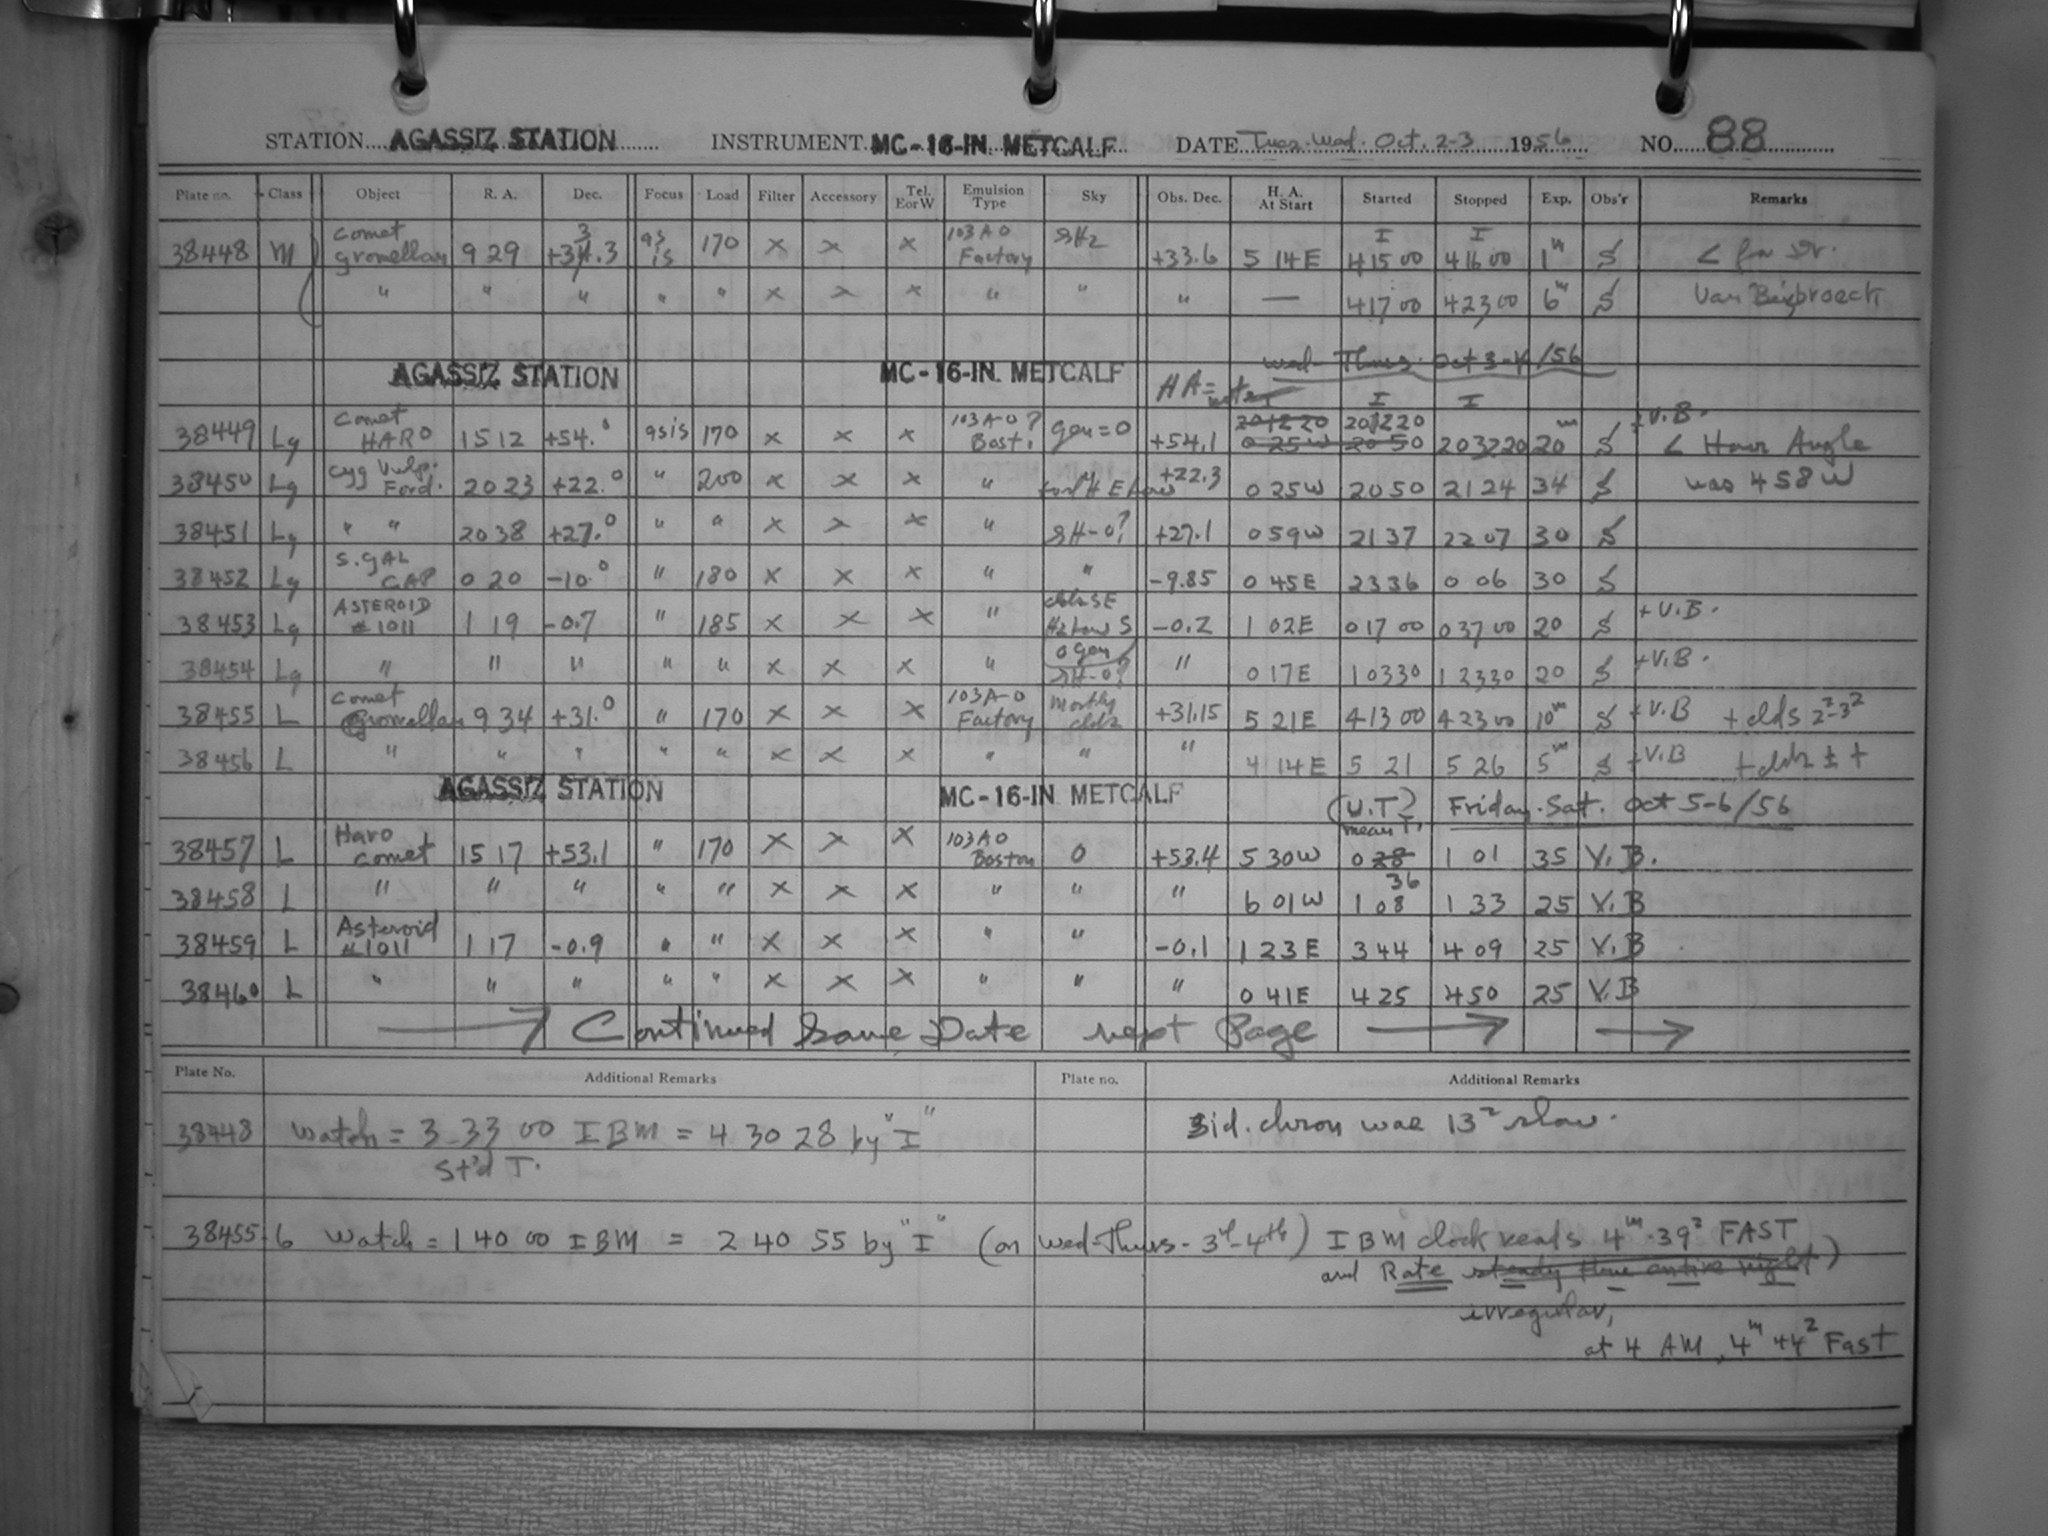 STATION AGASSIZ STATION INSTRUMENT MC-16-IN. METCALF DATE Tues-Wed. Oct. 2-3 1956 NO. 88
Plate no. Class Object R. A. Dec. Focus Load Filter Accessory Tel. E or W Emulsion Type Sky Obs. Dec. H. A. At Start Started Stopped Exp. Obs'r Remarks
38448 M Comet 9 29 as is 170 x x x 103AO Factory +33.6 5 14E I 4 15 00 I 4 16 00 1m S < for Dr.
" " " " " x x x " " " — 4 17 00 4 23 00 6m S Van Biesbroeck
AGASSIZ STATION MC-16-IN. METCALF Wed-Thurs. Oct 3-4/56
HA= I I
38449 Lg Comet HARO 15 12 +54.0 as is 170 x x x 103A-O? Bost. gen=0 +54.1 20 12 20 0 25W 20 12 20 20 50 20 32 20 20m S +V.B. < Hour Angle
38450 Lg Cyg Vulp. Ford. 20 23 +22.0 " 200 x x x " +22.3 0 25W 20 50 21 24 34 S was 4 58 W
38451 Lg " " 20 38 +27.0 " " x x x " SH-0? +27.1 0 59W 21 37 22 07 30 S
38452 Lg S. GAL CAP 0 20 -10.0 " 180 x x x " " -9.85 0 45E 23 36 0 06 30 S
38453 Lg ASTEROID #1011 1 19 -0.7 " 185 x x x " Hz Low S -0.2 1 02E 0 17 00 0 37 00 20 S +V.B.
38454 Lg " " " " " x x x " 0 gen SH-0? " 0 17E 1 03 30 1 23 30 20 S +V.B.
38455 L Comet 9 34 +31.0 " 170 x x x 103A-O Factory Mostly clds +31.15 5 21E 4 13 00 4 23 00 10m S +V.B + clds
38456 L " " " " " x x x " " " 4 14E 5 21 5 26 5m S +V.B
AGASSIZ STATION MC-16-IN METCALF (U.T?) mean T. Friday-Sat. Oct 5-6/56
38457 L Haro Comet 15 17 +53.1 " 170 x x x 103AO Boston 0 +53.4 5 30W 0 28 1 01 35 V.B.
38458 L " " " " " x x x " " " 6 01W 36 1 08 1 33 25 V.B
38459 L Asteroid #1011 1 17 -0.9 " " x x x " " -0.1 1 23E 3 44 4 09 25 V.B
38460 L " " " " " x x x " " " 0 41E 4 25 4 50 25 V.B
→ Continued Same Date next Page → →
Plate No. Additional Remarks Plate no. Additional Remarks
38448 Watch = 3 33 00 IBM = 4 30 28 by "I" Sid. chron was 13s slow.
St'd T.
38455-6 Watch = 1 40 00 IBM = 2 40 55 by "I" (on Wed-Thurs - 3rd-4th) IBM clock reads 4m 39s FAST
and Rate steady thru entire night)
irregular,
at 4 AM, 4m 44s Fast